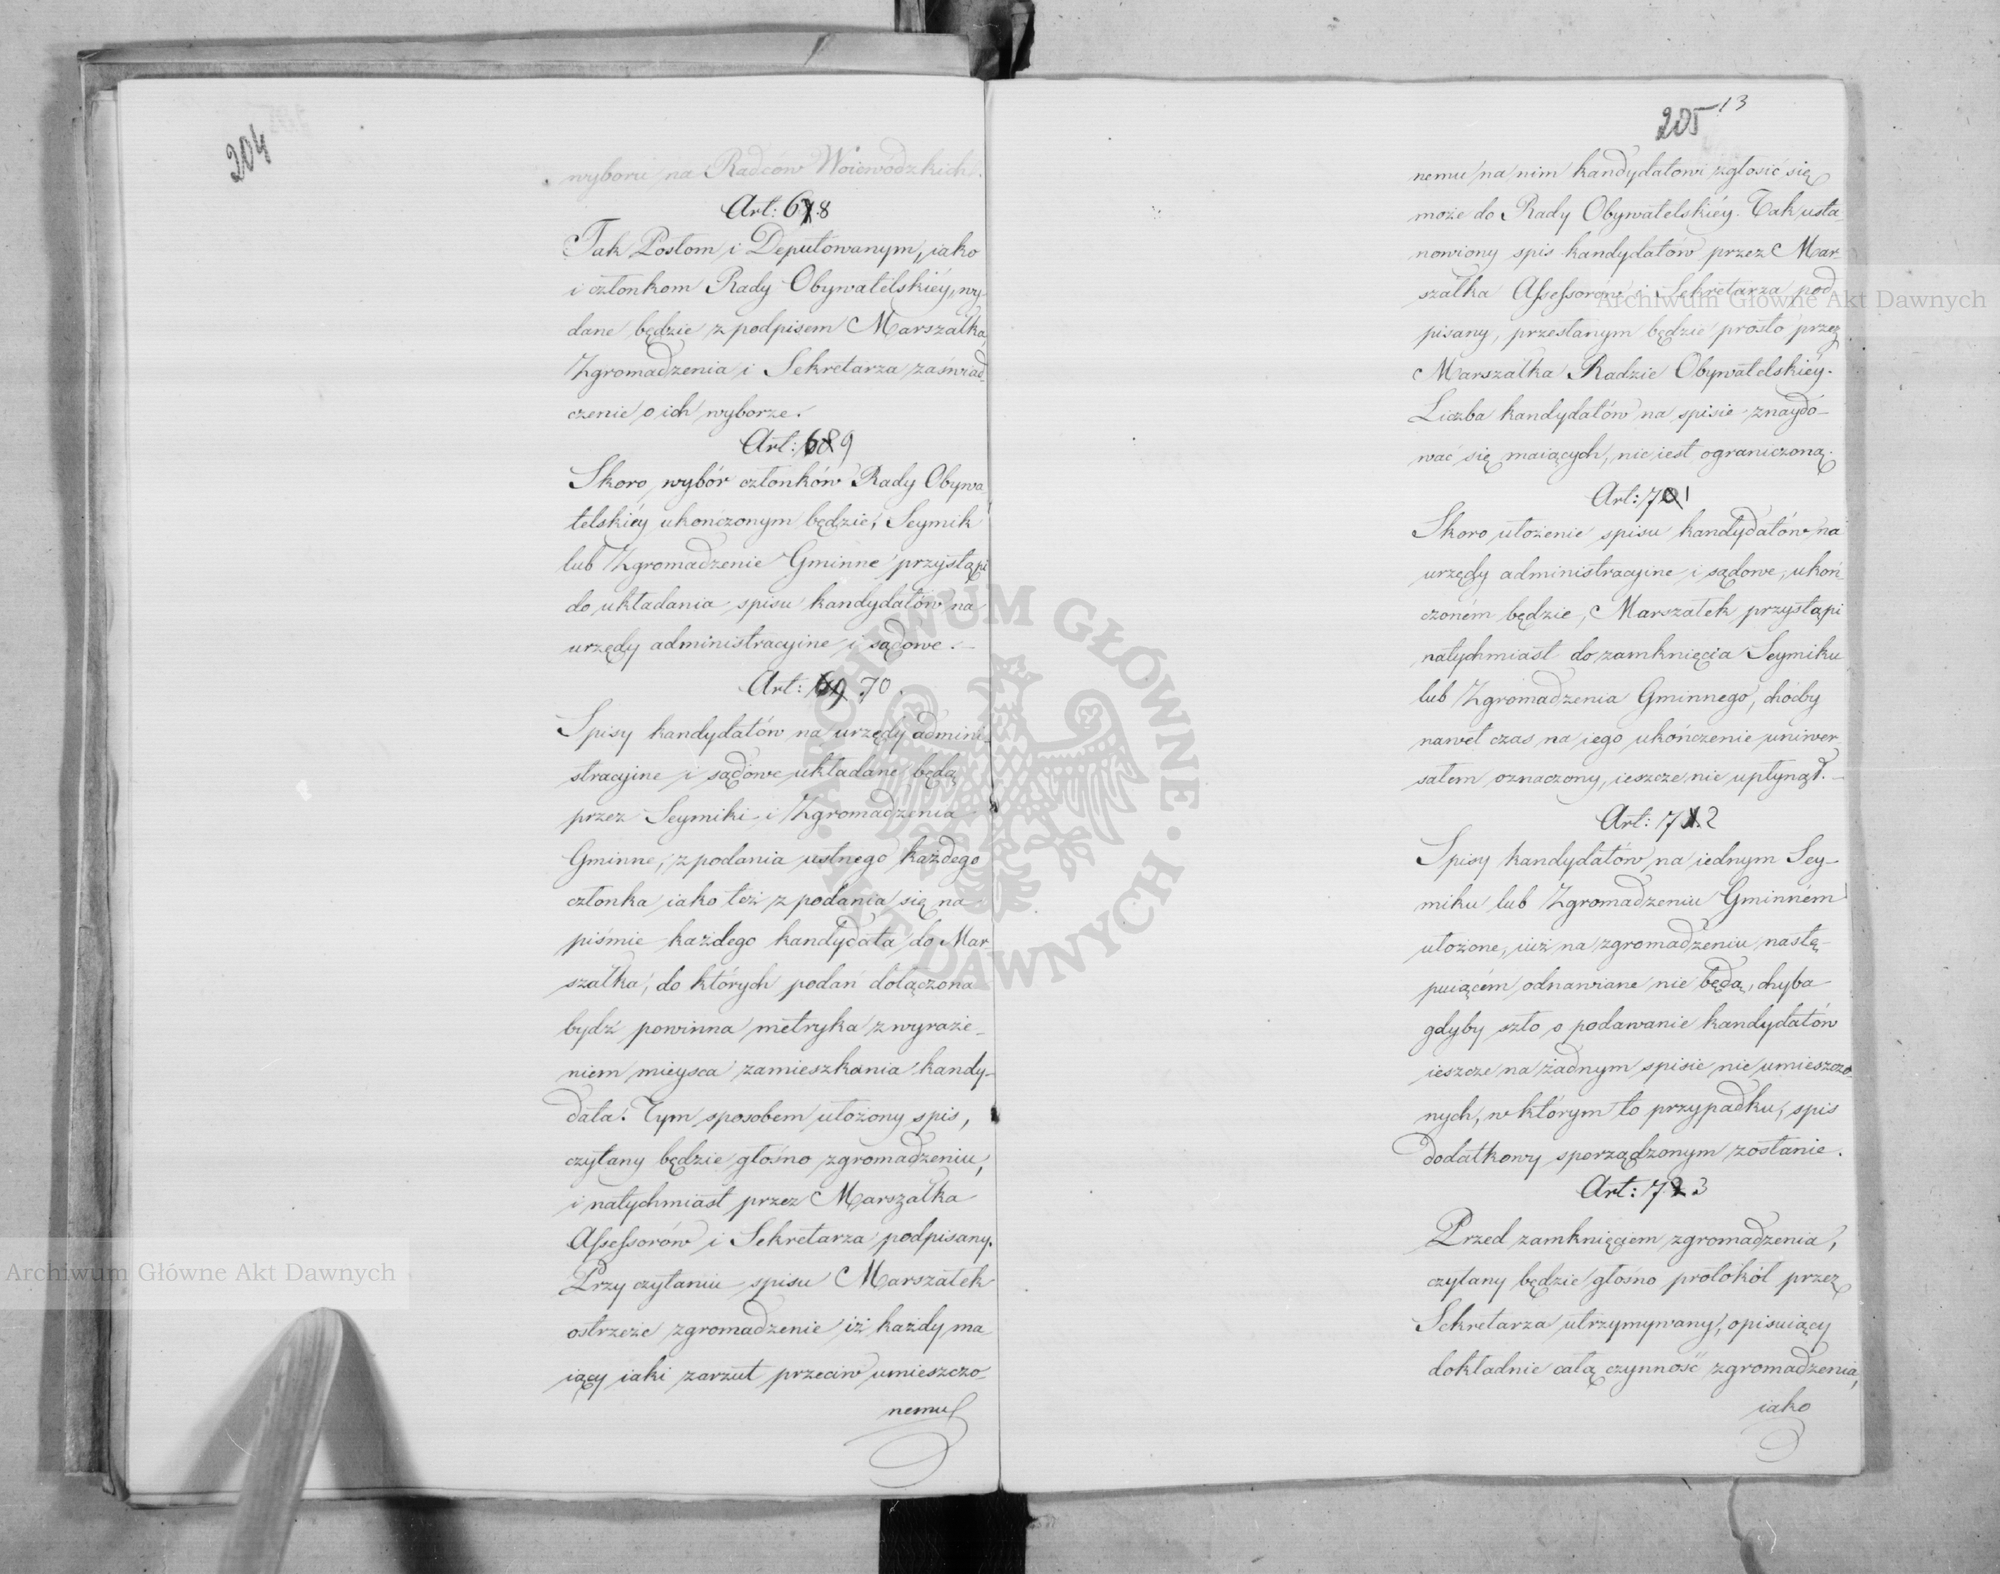 204
wyboru na Radców Woiewódzkich.
Art: 678
Tak Posłom i Deputowanym, iako
i członkom Rady Obywatelskiéy, wy-
dane będzie z podpisem Marszałka
Zgromadzenia i Sekretarza zaświad-
czenie o ich wyborze.
Art: 689
Skoro wybór członków Rady Obywa-
telskiéy ukończonym będzie, Seymik
lub Zgromadzenie Gminne przystąpi
do układania spisu kandydatów na
urzędy administracyine i sądowe.
Art: 69 70.
Spisy kandydatów na urzędy admini-
stracyine i sądowe układane będą
przez Seymiki i Zgromadzenia
Gminne, z podania ustnego każdego
członka iako też z podania się na
piśmie każdego kandydata do Mar
szałka, do których podań dołączona
bydź powinna metryka z wyraże-
niem mieysca zamieszkania kandy-
data. Tym sposobem ułożony spis,
czytany będzie głośno zgromadzeniu,
i natychmiast przez Marszałka
Assessorów i Sekretarza podpisany.
Przy czytaniu spisu Marszałek
ostrzeże zgromadzenie iż każdy ma
iący iaki zarzut przeciw umieszczo-
nemu
205 13
nemu na nim kandydatowi zgłosić się
może do Rady Obywatelskiéy. Tak usta
nowiony spis kandydatów przez Mar-
szałka Assessorów i Sekretarza pod
pisany, przesłanym będzie prosto przez
Marszałka Radzie Obywatelskiéy.
Liczba kandydatów na spisie znaydo-
wać się maiących, nie iest ograniczoną.
Art: 701
Skoro ułożenie spisu kandydatów na
urzędy administracyine i sądowe, ukoń-
czoném będzie, Marszałek przystąpi
natychmiast do zamknięcia Seymiku
lub Zgromadzenia Gminnego, choćby
nawet czas na iego ukończenie uniwer
sałem oznaczony, ieszcze nie upłynął.
Art: 71.2
Spisy kandydatów na iednym Sey-
miku lub Zgromadzeniu Gminném
ułożone, iuż na zgromadzeniu nastę-
puiącém odnawiane nie będą, chyba
gdyby szło o podawanie kandydatów
ieszcze na żadnym spisie nie umieszczo-
nych, w którym to przypadku, spis
dodatkowy sporządzonym zostanie.
Art: 72 3
Przed zamknięciem zgromadzenia,
czytany będzie głośno protokół przez
Sekretarza utrzymywany, opisuiący
dokładnie całą czynność zgromadzenia,
iako
Archiwum Główne Akt Dawnych
Archiwum Główne Akt Dawnych
ARCHIWUM GŁÓWNE AKT DAWNYCH